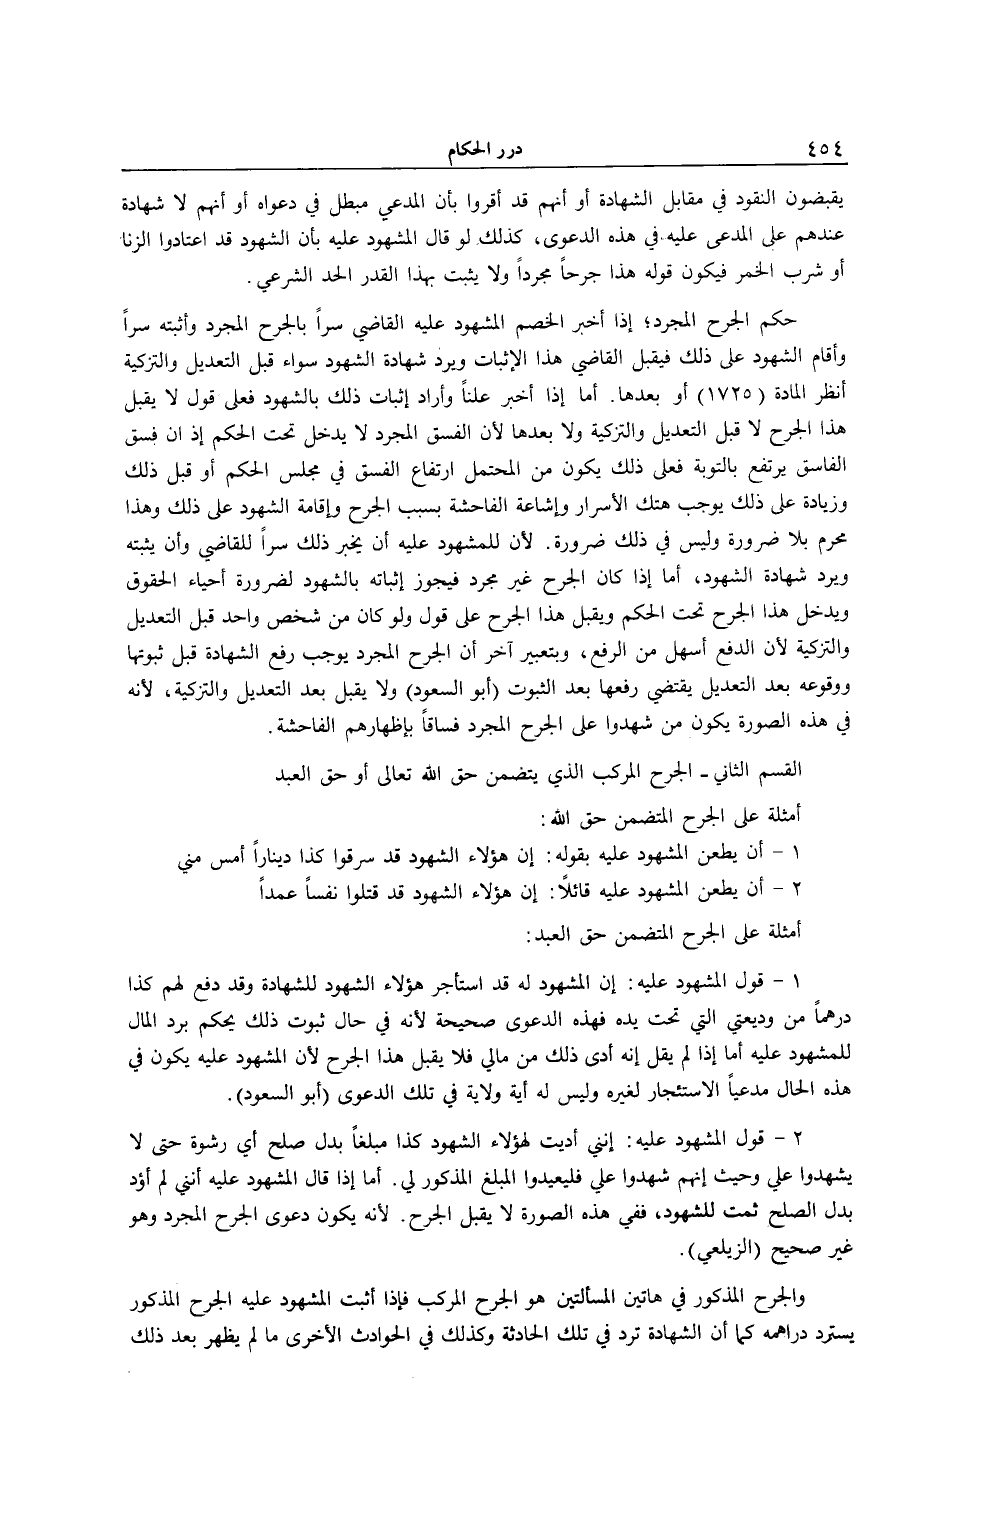 ٤٥٤ درر الحكام
يقبضون النقود في مقابل الشهادة أو أنهم قد أقروا بأن المدعي مبطل في دعواه أو أنهم لا شهادة
عندهم على المدعى عليه في هذه الدعوى، كذلك لو قال المشهود عليه بأن الشهود قد اعتادوا الزنا
أو شرب الخمر فيكون قوله هذا جرحاً مجرداً ولا يثبت بهذا القدر الحد الشرعي.
حكم الجرح المجرد؛ إذا أخبر الخصم المشهود عليه القاضي سراً بالجرح المجرد وأثبته سراً
وأقام الشهود على ذلك فيقبل القاضي هذا الإثبات ويرد شهادة الشهود سواء قبل التعديل والتزكية
أنظر المادة (١٧٢٥) أو بعدها. أما إذا أخبر علناً وأراد إثبات ذلك بالشهود فعلى قول لا يقبل
هذا الجرح لا قبل التعديل والتزكية ولا بعدها لأن الفسق المجرد لا يدخل تحت الحكم إذ ان فسق
الفاسق يرتفع بالتوبة فعلى ذلك يكون من المحتمل ارتفاع الفسق في مجلس الحكم أو قبل ذلك
وزيادة على ذلك يوجب هتك الأسرار وإشاعة الفاحشة بسبب الجرح وإقامة الشهود على ذلك وهذا
محرم بلا ضرورة وليس في ذلك ضرورة. لأن للمشهود عليه أن يخبر ذلك سراً للقاضي وأن يثبته
ويرد شهادة الشهود، أما إذا كان الجرح غير مجرد فيجوز إثباته بالشهود لضرورة أحياء الحقوق
ويدخل هذا الجرح تحت الحكم ويقبل هذا الجرح على قول ولو كان من شخص واحد قبل التعديل
والتزكية لأن الدفع أسهل من الرفع، وبتعبير آخر أن الجرح المجرد يوجب رفع الشهادة قبل ثبوتها
ووقوعه بعد التعديل يقتضي رفعها بعد الثبوت (أبو السعود) ولا يقبل بعد التعديل والتزكية، لأنه
في هذه الصورة يكون من شهدوا على الجرح المجرد فساقاً بإظهارهم الفاحشة.
القسم الثاني ـ الجرح المركب الذي يتضمن حق الله تعالى أو حق العبد
أمثلة على الجرح المتضمن حق الله:
١ - أن يطعن المشهود عليه بقوله: إن هؤلاء الشهود قد سرقوا كذا ديناراً أمس مني
٢ - أن يطعن المشهود عليه قائلاً: إن هؤلاء الشهود قد قتلوا نفساً عمداً
أمثلة على الجرح المتضمن حق العبد:
١ - قول المشهود عليه: إن المشهود له قد استأجر هؤلاء الشهود للشهادة وقد دفع لهم كذا
درهماً من وديعتي التي تحت يده فهذه الدعوى صحيحة لأنه في حال ثبوت ذلك يحكم برد المال
للمشهود عليه أما إذا لم يقل إنه أدى ذلك من مالي فلا يقبل هذا الجرح لأن المشهود عليه يكون في
هذه الحال مدعياً الاستئجار لغيره وليس له أية ولاية في تلك الدعوى (أبو السعود).
٢ - قول المشهود عليه: إنني أديت لهؤلاء الشهود كذا مبلغاً بدل صلح أي رشوة حتى لا
يشهدوا علي وحيث إنهم شهدوا علي فليعيدوا المبلغ المذكور لي. أما إذا قال المشهود عليه أنني لم أؤد
بدل الصلح ثمت للشهود، ففي هذه الصورة لا يقبل الجرح. لأنه يكون دعوى الجرح المجرد وهو
غير صحيح (الزيلعي).
والجرح المذكور في هاتين المسألتين هو الجرح المركب فإذا أثبت المشهود عليه الجرح المذكور
يسترد دراهمه كما أن الشهادة ترد في تلك الحادثة وكذلك في الحوادث الأخرى ما لم يظهر بعد ذلك